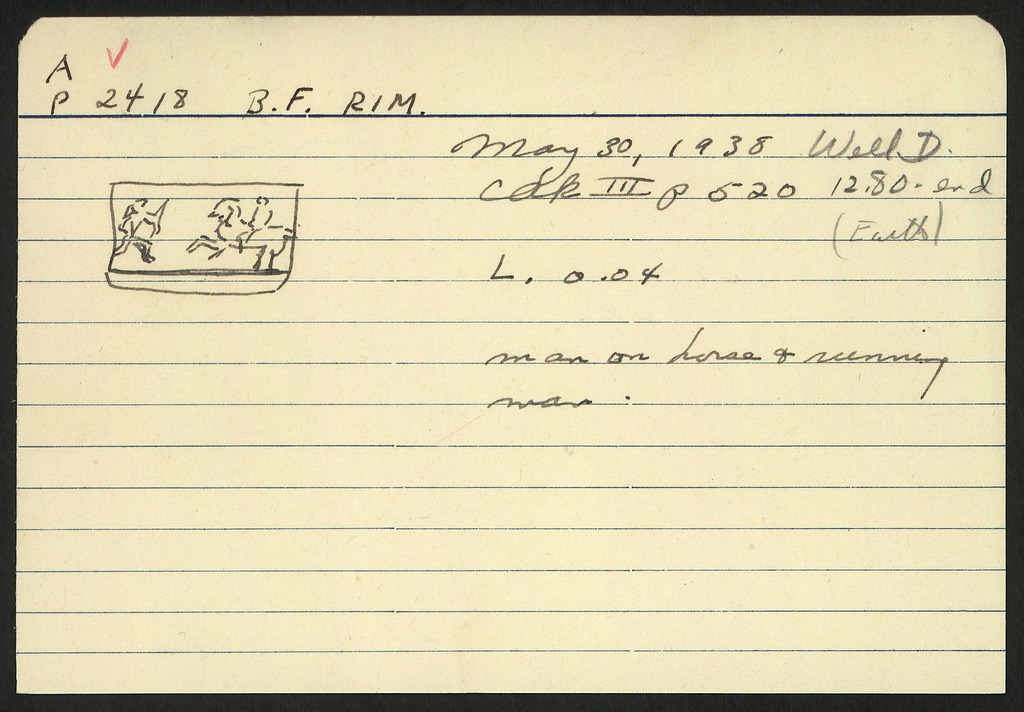 A ✓
P 2418 B.F. RIM.
May 30, 1938 Well D.
CdK III p 520 12.80-end
(Earth)
L. 0.04
man on horse & running
man.